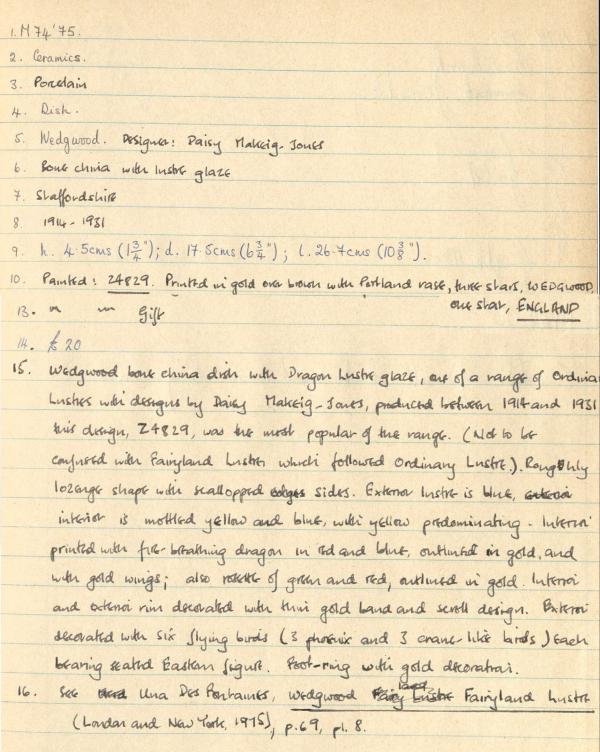 1. M 74'75.
2. Ceramics.
3. Porcelain
4. Dish.
5. Wedgwood. Designer: Daisy Makeig-Jones
6. Bone china with lustre glaze
7. Staffordshire
8. 1914-1931
9. h. 4.5cms (1 3/4"); d. 17.5cms (6 3/4"); l. 26.7cms (10 3/8").
10. Painted: Z4829. Printed in gold over brown with Portland vase, three stars, WEDGWOOD,
one star, ENGLAND
13. " " Gift
14. £20
15. Wedgwood bone china dish with Dragon Lustre glaze, one of a range of Ordina
Lustres with designs by Daisy Makeig-Jones, produced between 1914 and 1931
this design, Z4829, was the most popular of the range. (Not to be
confused with Fairyland Lustre which followed Ordinary Lustre.). Roughly
lozenge shape with scalloped edges sides. Exterior lustre is blue, exterior
interior is mottled yellow and blue, with yellow predominating. Interior
printed with fire-breathing dragon in red and blue, outlined in gold, and
with gold wings; also rosette of green and red, outlined in gold. Interior
and exterior rim decorated with thin gold band and scroll design. Exterior
decorated with six flying birds (3 phoenix and 3 crane-like birds) each
bearing seated Eastern figure. Foot-ring with gold decoration.
16. See Una Des Fontaines, Wedgwood Fairy land Lustre Fairyland Lustre
(London and New York, 1975), p.69, pl. 8.